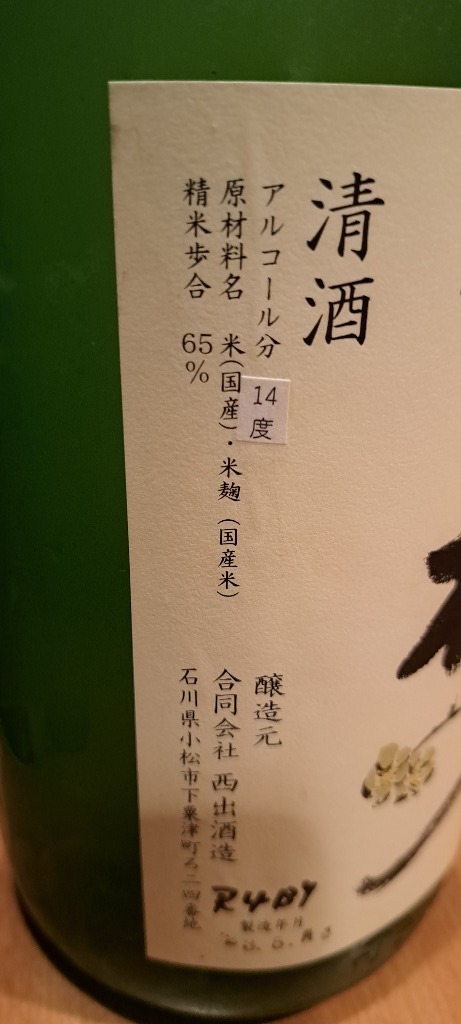 清酒
アルコール分
14度
原材料名 米(国産)・米麹(国産米)
精米歩合 65%
醸造元
合同会社 西出酒造
石川県小松市下粟津町ろ二四番地
RUBY
製造年月